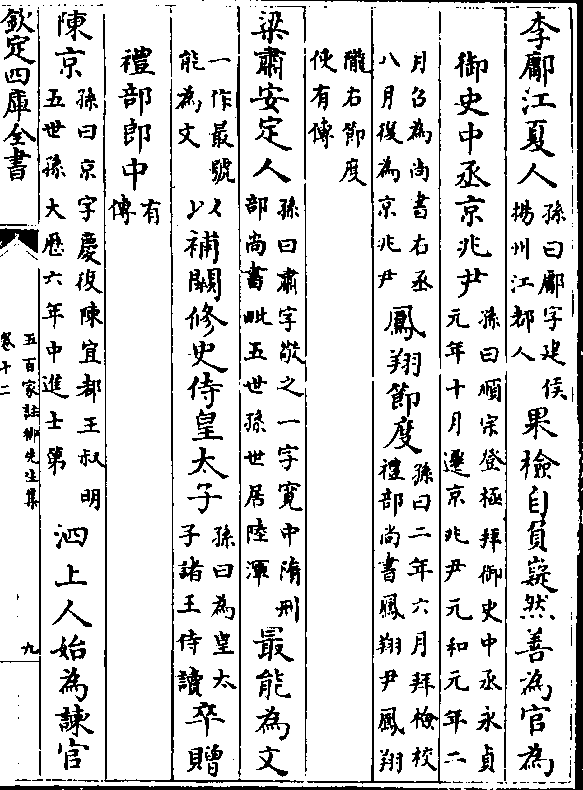 李鄘江夏人孫曰鄘字建侯揚州江都人果檢自負嶷然善為官為
御史中丞京兆尹孫曰順宗登極拜御史中丞永貞元年十月遷京兆尹元和元年二
月召為尚書右丞八月復為京兆尹鳳翔節度孫曰二年六月拜檢校禮部尚書鳳翔尹鳳翔
隴右節度使有傳
梁肅安定人孫曰肅字敬之一字寛中隋刑部尚書毗五世孫世居陸渾最能為文
一作最號能為文以補闕修史侍皇太子孫曰為皇太子諸王侍讀卒贈
禮部郎中有傳
陳京孫曰京字慶復陳宜都王叔明五世孫大厯六年中進士第泗上人始為諫官
欽定四庫全書
五百家註柳先生集
卷十二
九